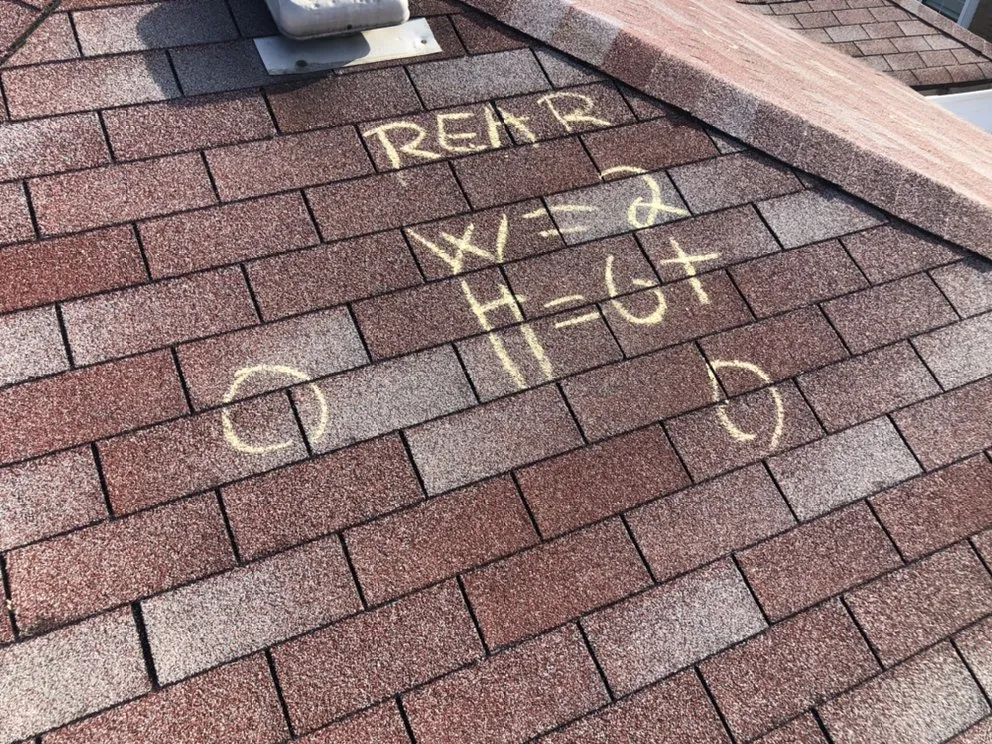 REAR
W = 2
H = 6+